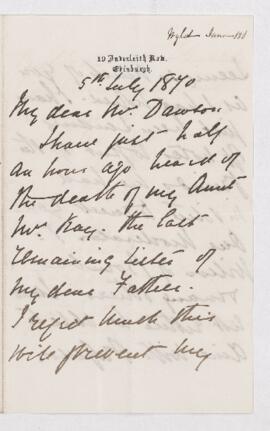 19 Inverleith Row.
Edinburgh.
5th July 1870
My dear Mr. Dawson
I have just half
an hour ago heard of
the death of my Aunt
Mrs Kay. the last
remaining sister of
my dear Father.
I regret much this
will prevent my